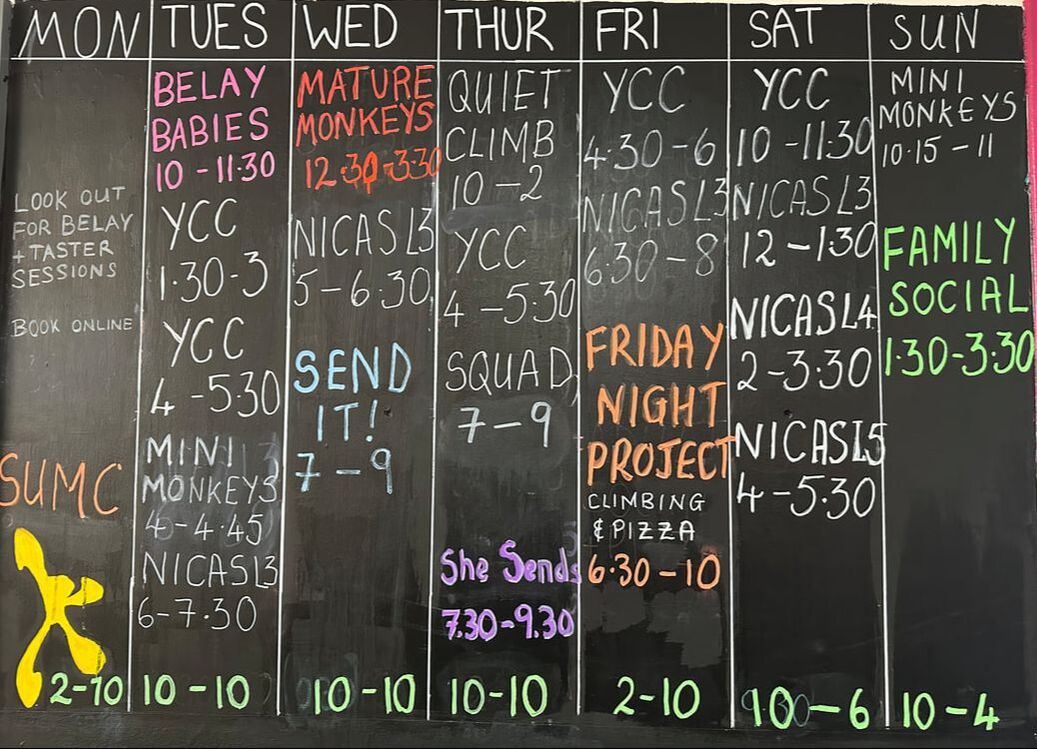 MON
LOOK OUT
FOR BELAY
+ TASTER
SESSIONS
BOOK ONLINE
SUMC
2-10
TUES
BELAY
BABIES
10 - 11:30
YCC
1.30-3
YCC
4 - 5:30
MINI
MONKEYS
4 - 4.45
NICASL3
6-7.30
10 - 10
WED
MATURE
MONKEYS
12.30-3:30
NICASL3
5 - 6.30
SEND
IT!
7 - 9
10 - 10
THUR
QUIET
CLIMB
10 - 2
YCC
4 - 5:30
SQUAD
7 - 9
She Sends
7.30-9.30
10-10
FRI
YCC
4.30 - 6
NICASL3
6.30 - 8
FRIDAY
NIGHT
PROJECT
CLIMBING
& PIZZA
6.30 - 10
2-10
SAT
YCC
10 - 11:30
NICASL3
12 - 1.30
NICASL4
2 - 3.30
NICASL5
4 - 5.30
10 - 6
SUN
MINI
MONKEYS
10.15 - 11
FAMILY
SOCIAL
1.30-3.30
10 - 4